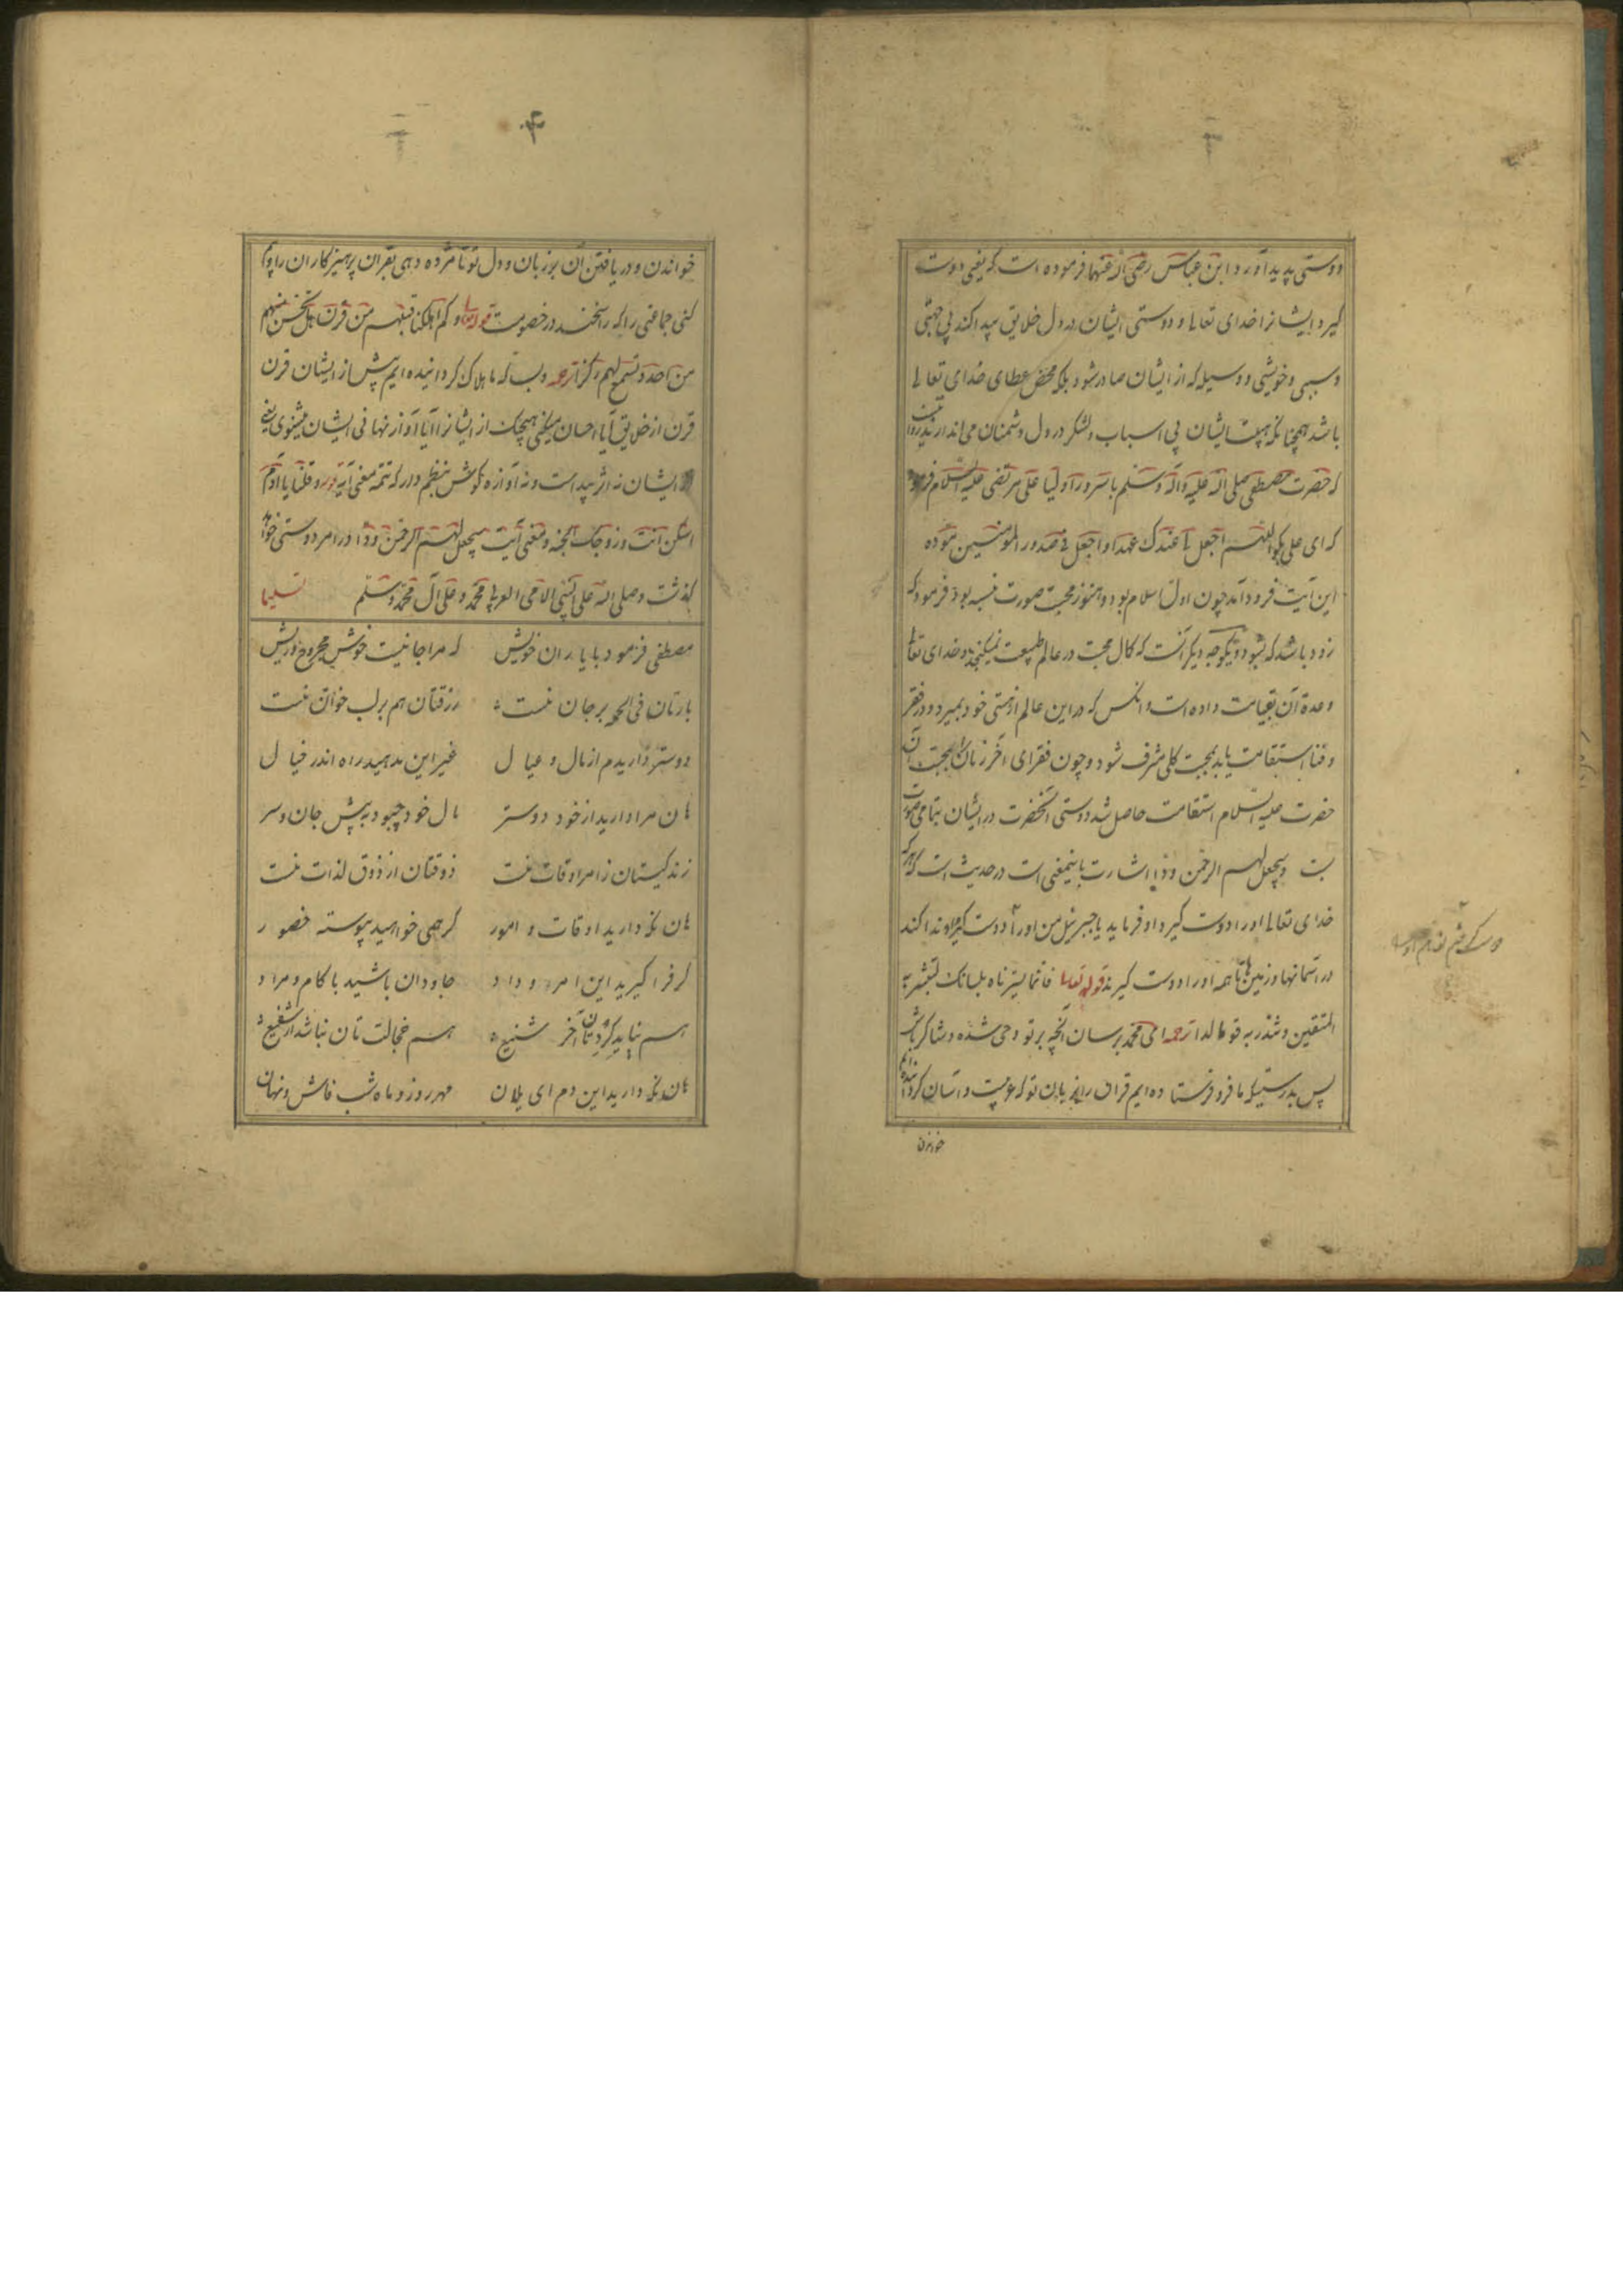 دوستی پدید آورد و ابن عباس رضی الله عنهما فرموده است که یعنی دوست
گیرد ایشانرا خدای تعالی و دوستی ایشان در دل خلایق پیدا کند بی جهتی
و سببی و خویشی و وسیله که از ایشان صادر شود بلکه محض عطای خدای تعالی
باشد همچنانکه هیبت ایشان بی اسباب و لشکر در دل دشمنان می اندازد
که حضرت مصطفی صلی الله علیه و آله و سلم با سرور اولیا علی مرتضی علیه السلام فرمود
که ای علی بگو اللهم اجعل لی عندک عهدا و اجعل فی صدور المومنین موده
این آیت فرود آمد چون اول اسلام بود و هنوز محبت صورت نبسته بود فرمود که
زود باشد که بشود و یکوجه دیگر آنست که کمال محبت در عالم طبیعت نمیگنجد و خدای تعالی
وعده آن بقیامت داده است و انکس که در این عالم از هستی خود بمیرد و در فقر
و فنا استقامت یابد بمحبت کلی مشرف شود و چون فقرای آخر زمان را بمحبت آن
حضرت علیه السلام استقامت حاصل شد دوستی آنحضرت در ایشان بتمامی صورت
بست و سیجعل لهم الرحمن ودا اشارت باینمعنی است در حدیث است که هر که
خدای تعالی او را دوست گیرد او فرماید یا جبرئیل من او را دوست گیرم او ندا کند
در آسمانها و زمین ها تا همه او را دوست گیرند قوله تعالی فانما یسرناه بلسانک لتبشر به
المتقین و تنذر به قوما لدا ترجمه ای محمد برسان آنچه بر تو وحی شده و شاکر باش
پس بدرستیکه ما فرو فرستاده ایم قرآن را بزبان تو که عربیست و آسان کردانیده ایم
خواندن
خواندن و دریافتن آن بر زبان و دل تو تا مژده دهی بقران پرهیزکاران را و بیم
کنی جماعتی را که راسخند در خصومت قوله تعالی و کم اهلکنا قبلهم من قرن هل تحس منهم
من احد او تسمع لهم رکزا ترجمه و بسکه ما هلاک کردانیده ایم پیش از ایشان قرن
قرن از خلایق آیا احساس میکنی هیچکس از ایشانرا آیا آواز نهانی ایشان میشنوی یعنی
از ایشان نه اثر پیداست و نه آوازه کوش بنظم دار که تتمه معنی آیه و قلنا یا آدم
اسکن انت و زوجک الجنه و معنی آیت سیجعل لهم الرحمن ودا در امر دوستی خواهد
گذشت و صلی الله علی النبی الامی العربی محمد و علی آل محمد و سلم تسلیما
مصطفی فرمود با یاران خویش که مرا جانیست خوش مجروح و ریش
بارتان فی الجمله بر جان منست رزقتان هم بر لب خوان منست
دوستر داریدم از مال و عیال غیر این مدهید راه اندر خیال
هان مرا دارید از خود دوستر مال خود چبود به پیش جان و سر
زندگیستان زامر اوقات منست ذوقتان از ذوق لذات منست
هان نگه دارید اوقات و امور گر همی خواهید پیوسته حضور
گر فرا گیرید این امر و داد جاودان باشید با کام و مراد
هم نیاید کردتان آخر شنیع هم خجالت تان نباشد از شفیع
هان نگه دارید این دم ای یلان مهر روز و ماه شب فاش و نهان